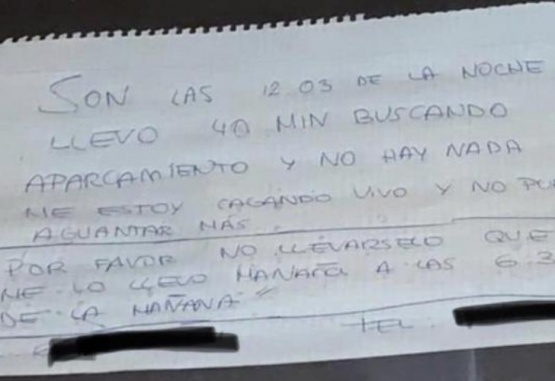 SON LAS 12 03 DE LA NOCHE
LLEVO 40 MIN BUSCANDO
APARCAMIENTO Y NO HAY NADA
ME ESTOY CAGANDO VIVO Y NO
AGUANTAR MÁS.
POR FAVOR NO LLEVARSELO QUE
ME LO LLEVO MAÑANA A LAS
DE LA MAÑANA
TEL.